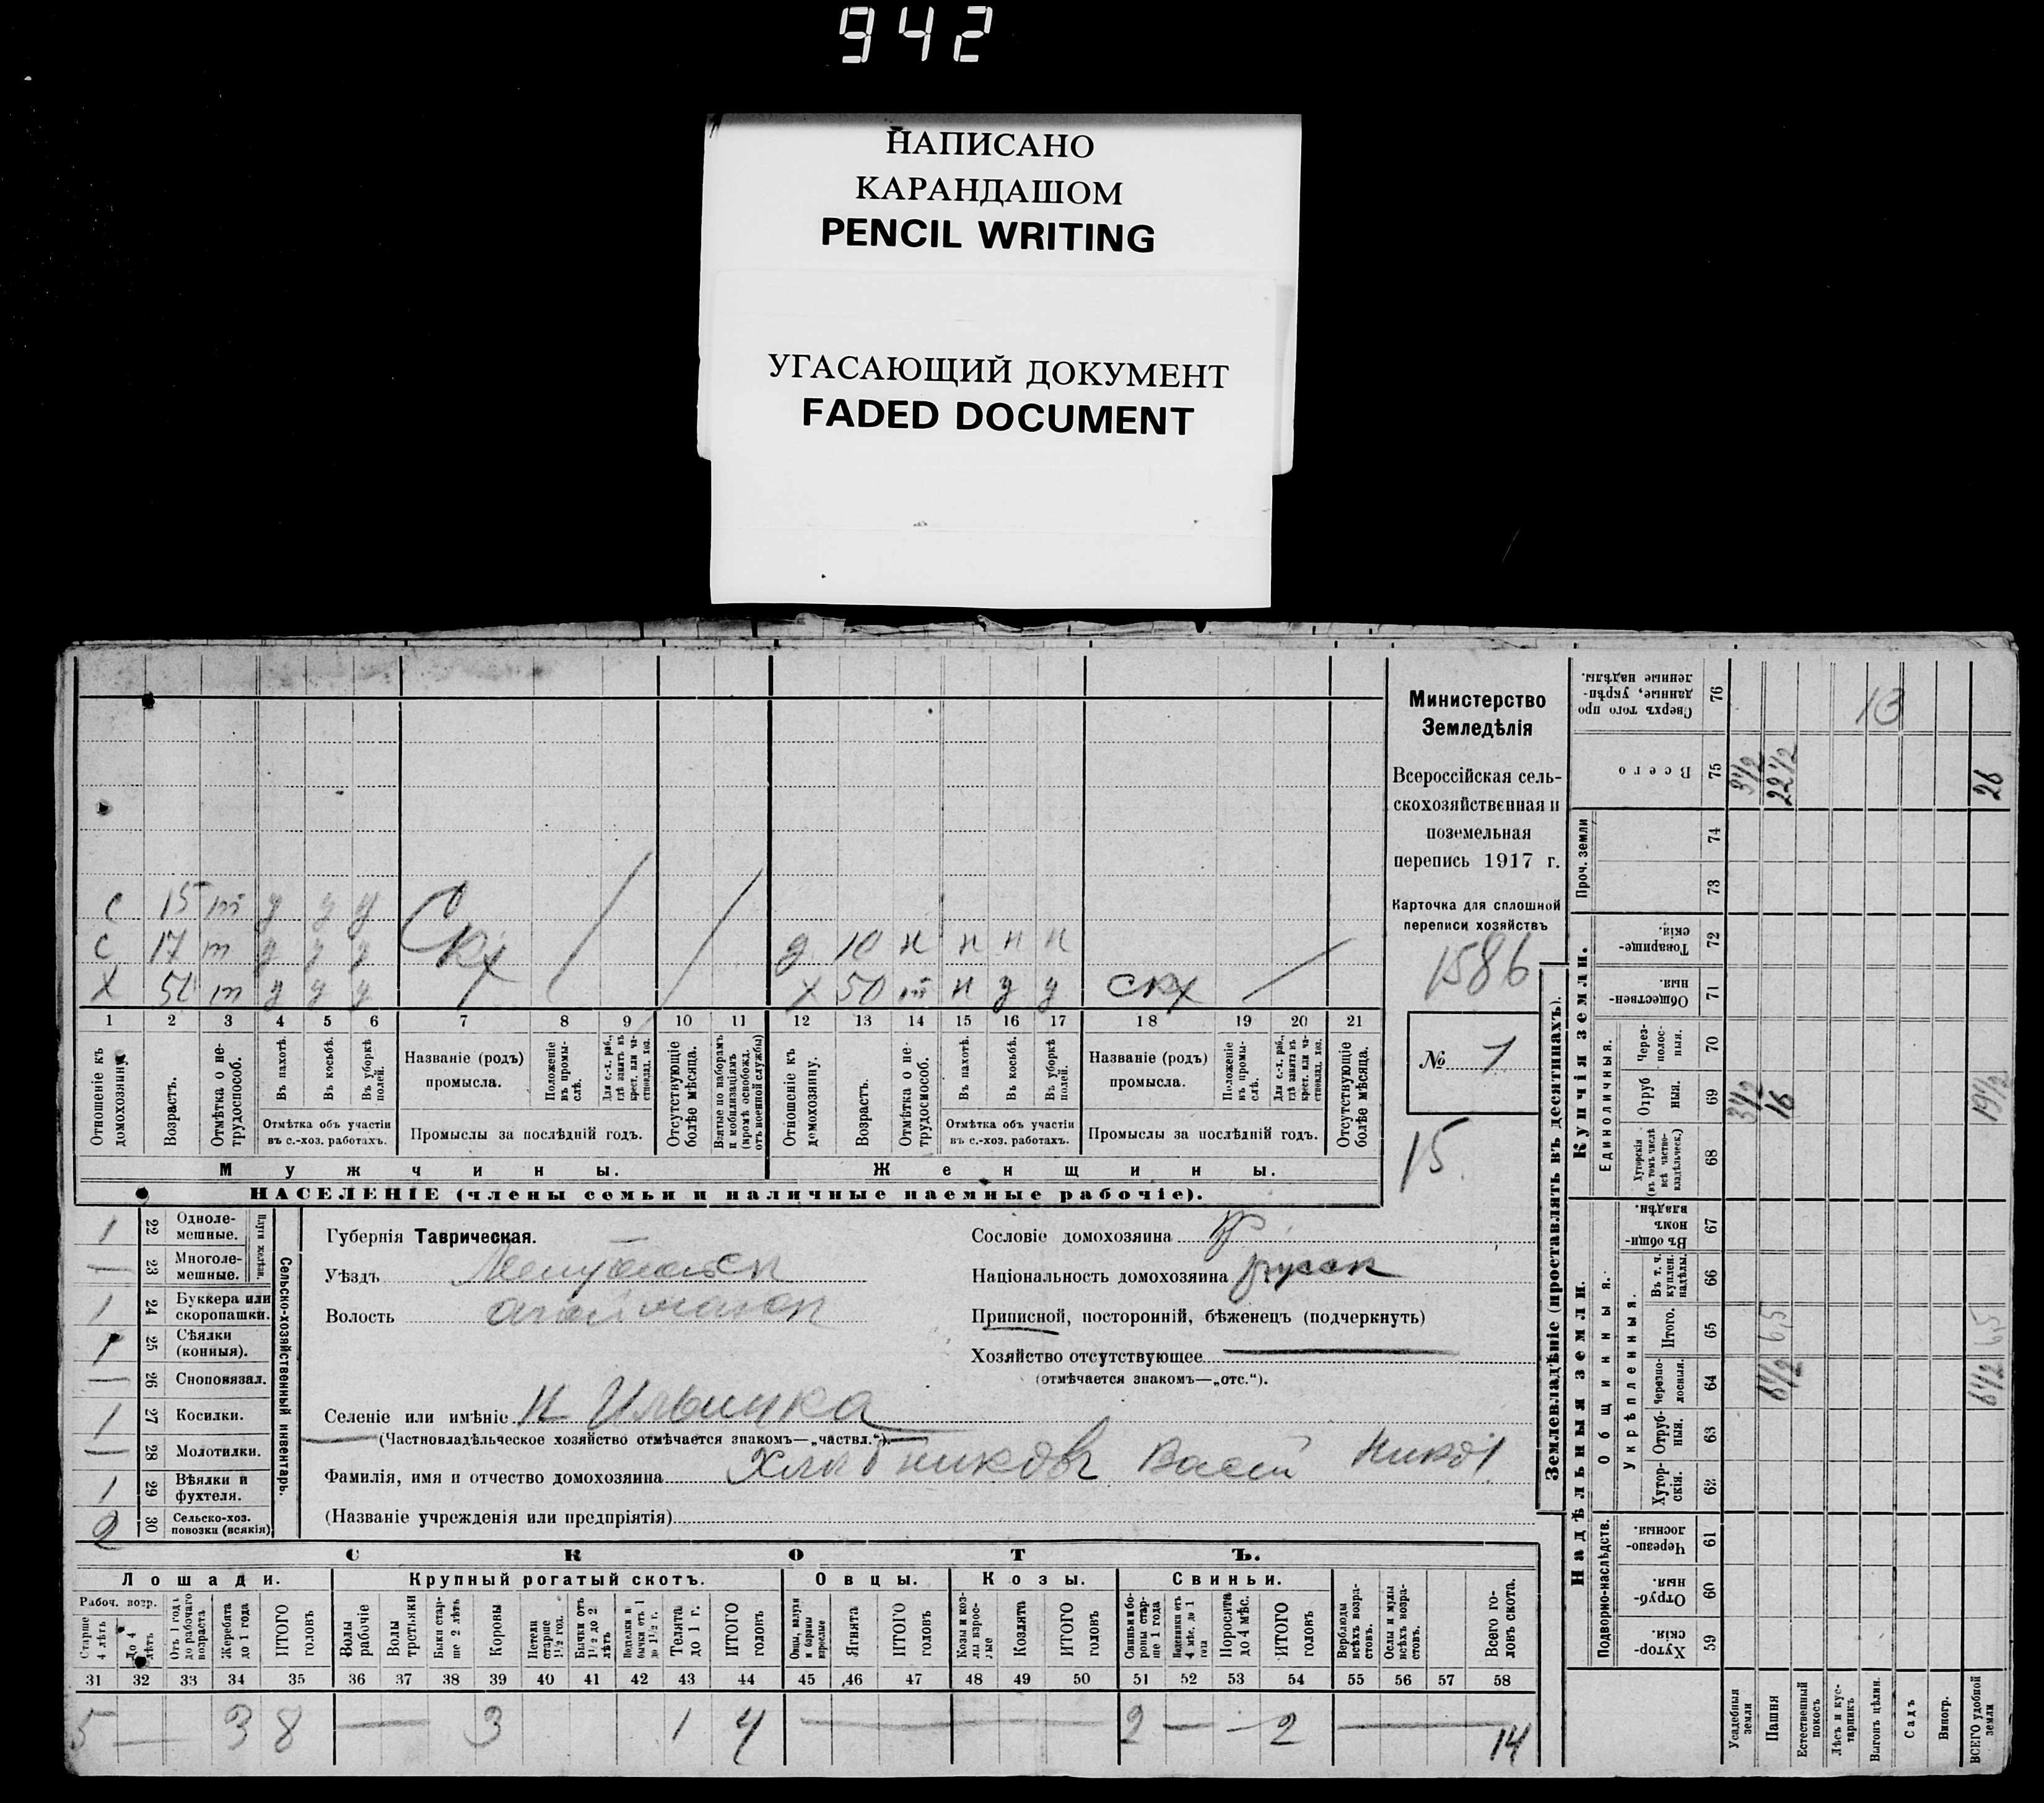 942
НАПИСАНО
КАРАНДАШОМ
PENCIL WRITING
УГАСАЮЩИЙ ДОКУМЕНТ
FADED DOCUMENT
Министерство
Земледѣлія
Всероссійская сель-
скохозяйственная и
поземельная
перепись 1917 г.
Карточка для сплошной
переписи хозяйствъ
1586
№ 1
15
с 15 т у у у
с 17 т у у у Скх д 10 н н н н
х т у у у х 50 т н у у скх
1 2 3 4 5 6 7 8 9 10 11 12 13 14 15 16 17 18 19 20 21
Отношеніе къ домохозяину.
Возрастъ.
Отмѣтка о не-трудоспособ.
Въ пахотѣ.
Въ косьбѣ.
Въ уборкѣ полей.
Отмѣтка объ участіи въ с.-хоз. работахъ.
Названіе (родъ) промысла.
Положеніе въ промы-слѣ.
Для с.-х. раб., гдѣ занятъ въ крест. или ча-стновлад. хоз.
Промыслы за послѣдній годъ.
Отсутствующіе болѣе мѣсяца.
Взятые по наборамъ и мобилизаціямъ (кромѣ освобожд. отъ военной службы)
Отношеніе къ домохозяину.
Возрастъ.
Отмѣтка о не-трудоспособ.
Въ пахотѣ.
Въ косьбѣ.
Въ уборкѣ полей.
Отмѣтка объ участіи въ с.-хоз. работахъ.
Названіе (родъ) промысла.
Положеніе въ промы-слѣ.
Для с.-х. раб., гдѣ занята въ крест. или ча-стновлад. хоз.
Промыслы за послѣдній годъ.
Отсутствующіе болѣе мѣсяца.
Мужчины. Женщины.
НАСЕЛЕНІЕ (члены семьи и наличные наемные рабочіе).
Сельско-хозяйственный инвентарь.
Плуги желѣзн.
1 22 Одноле-мешные.
— 23 Многоле-мешные.
1 24 Буккера или скоропашки.
1 25 Сѣялки (конныя).
— 26 Сноповязал.
1 27 Косилки.
— 28 Молотилки.
1 29 Вѣялки и фухтеля.
2 30 Сельско-хоз. повозки (всякія)
Губернія Таврическая.
Уѣздъ
Волость
Селеніе или имѣніе Н Ильинка
(Частновладѣльческое хозяйство отмѣчается знакомъ—„частвл.“).
Фамилія, имя и отчество домохозяина Васил Никол
(Названіе учрежденія или предпріятія)
Сословіе домохозяина кр.
Національность домохозяина русск
Приписной, посторонній, бѣженецъ (подчеркнуть)
Хозяйство отсутствующее
(отмѣчается знакомъ—„отс.“).
СКОТЪ.
Лошади. Крупный рогатый скотъ. Овцы. Козы. Свиньи.
Рабоч. возр.
Старше 4 лѣтъ
До 4 лѣтъ
Отъ 1 года до рабочаго возраста
Жеребята до 1 года
ИТОГО головъ
Волы рабочіе
Волы третьяки
Быки стар-ше 2 лѣтъ
Коровы
Нетели старше 1½ год.
Бычки отъ 1½ до 2 лѣтъ
Телята до 1 г.
ИТОГО головъ
Овцы, валухи и бараны взрослые
Ягнята
ИТОГО головъ
Козы и коз-лы взрос-лые
Козлята
ИТОГО головъ
Свиньи и бо-ровы стар-ше 1 года
Подсвинки отъ 4 мѣс. до 1 года
Поросята до 4 мѣс.
ИТОГО головъ
Верблюды всѣхъ возра-стовъ.
Ослы и мулы всѣхъ возра-стовъ.
Всего го-ловъ скота.
31 32 33 34 35 36 37 38 39 40 41 42 43 44 45 46 47 48 49 50 51 52 53 54 55 56 57 58
5 — 3 8 — 3 1 4 — 2 — — 2 — 14
Землевладѣніе (проставлять въ десятинахъ).
Надѣльныя земли.
Купчія земли.
Подворно-наслѣдств.
Общинныя.
Укрѣпленныя.
Единоличныя.
Проч. земли
Хутор-скія. 59
Отруб-ныя. 60
Черезпо-лосныя. 61
Хутор-скія. 62
Отруб-ныя. 63
Черезпо-лосныя. 64
Итого. 65
Въ т. ч. куплен. надѣлы. 66
Въ общин-номъ владѣн. 67
Хуторскія (въ томъ числѣ всѣ частно-владѣльческ.) 68
Отруб ныя. 69
Через-полос-ныя. 70
Обществен-ныя. 71
Товарище-скія. 72
73
74
Всего 75
Сверхъ того про-данные, укрѣп-ленные надѣлы. 76
Усадебныя земли 3½ 3½
Пашня 6½ 6,5 16 22½
Естественный покосъ
Лѣсъ и кус-тарникъ
Выгонъ цѣлин.
13
Садъ
Виногр.
ВСЕГО удобной земли 6½ 6,5 19½ 26